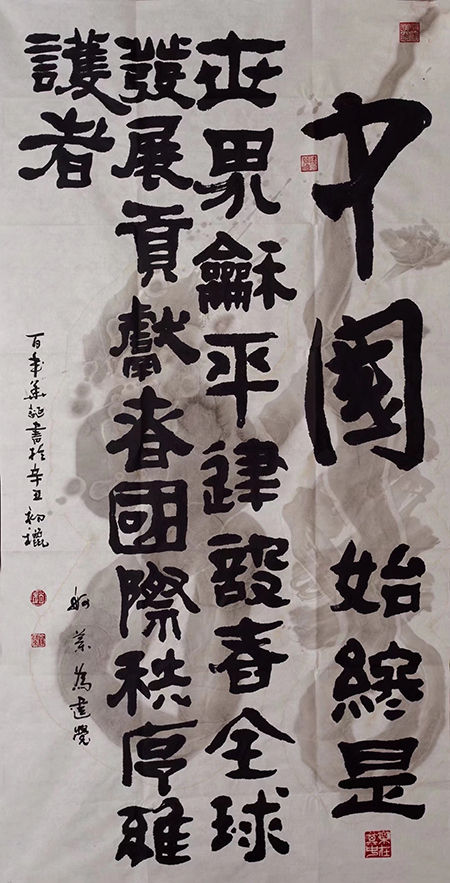 中國 始終是
世界龢平建設者全球
發展貢獻者國際秩序維
護者
百年華誕書於辛丑初臘